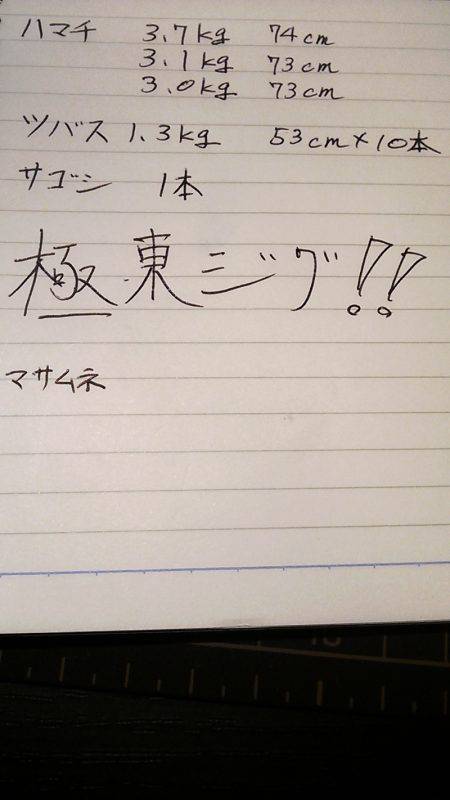 ハマチ 3.7kg 74cm
3.1kg 73cm
3.0kg 73cm
ツバス 1.3kg 53cm×10本
サゴシ 1本
極東ジグ!!
マサムネ